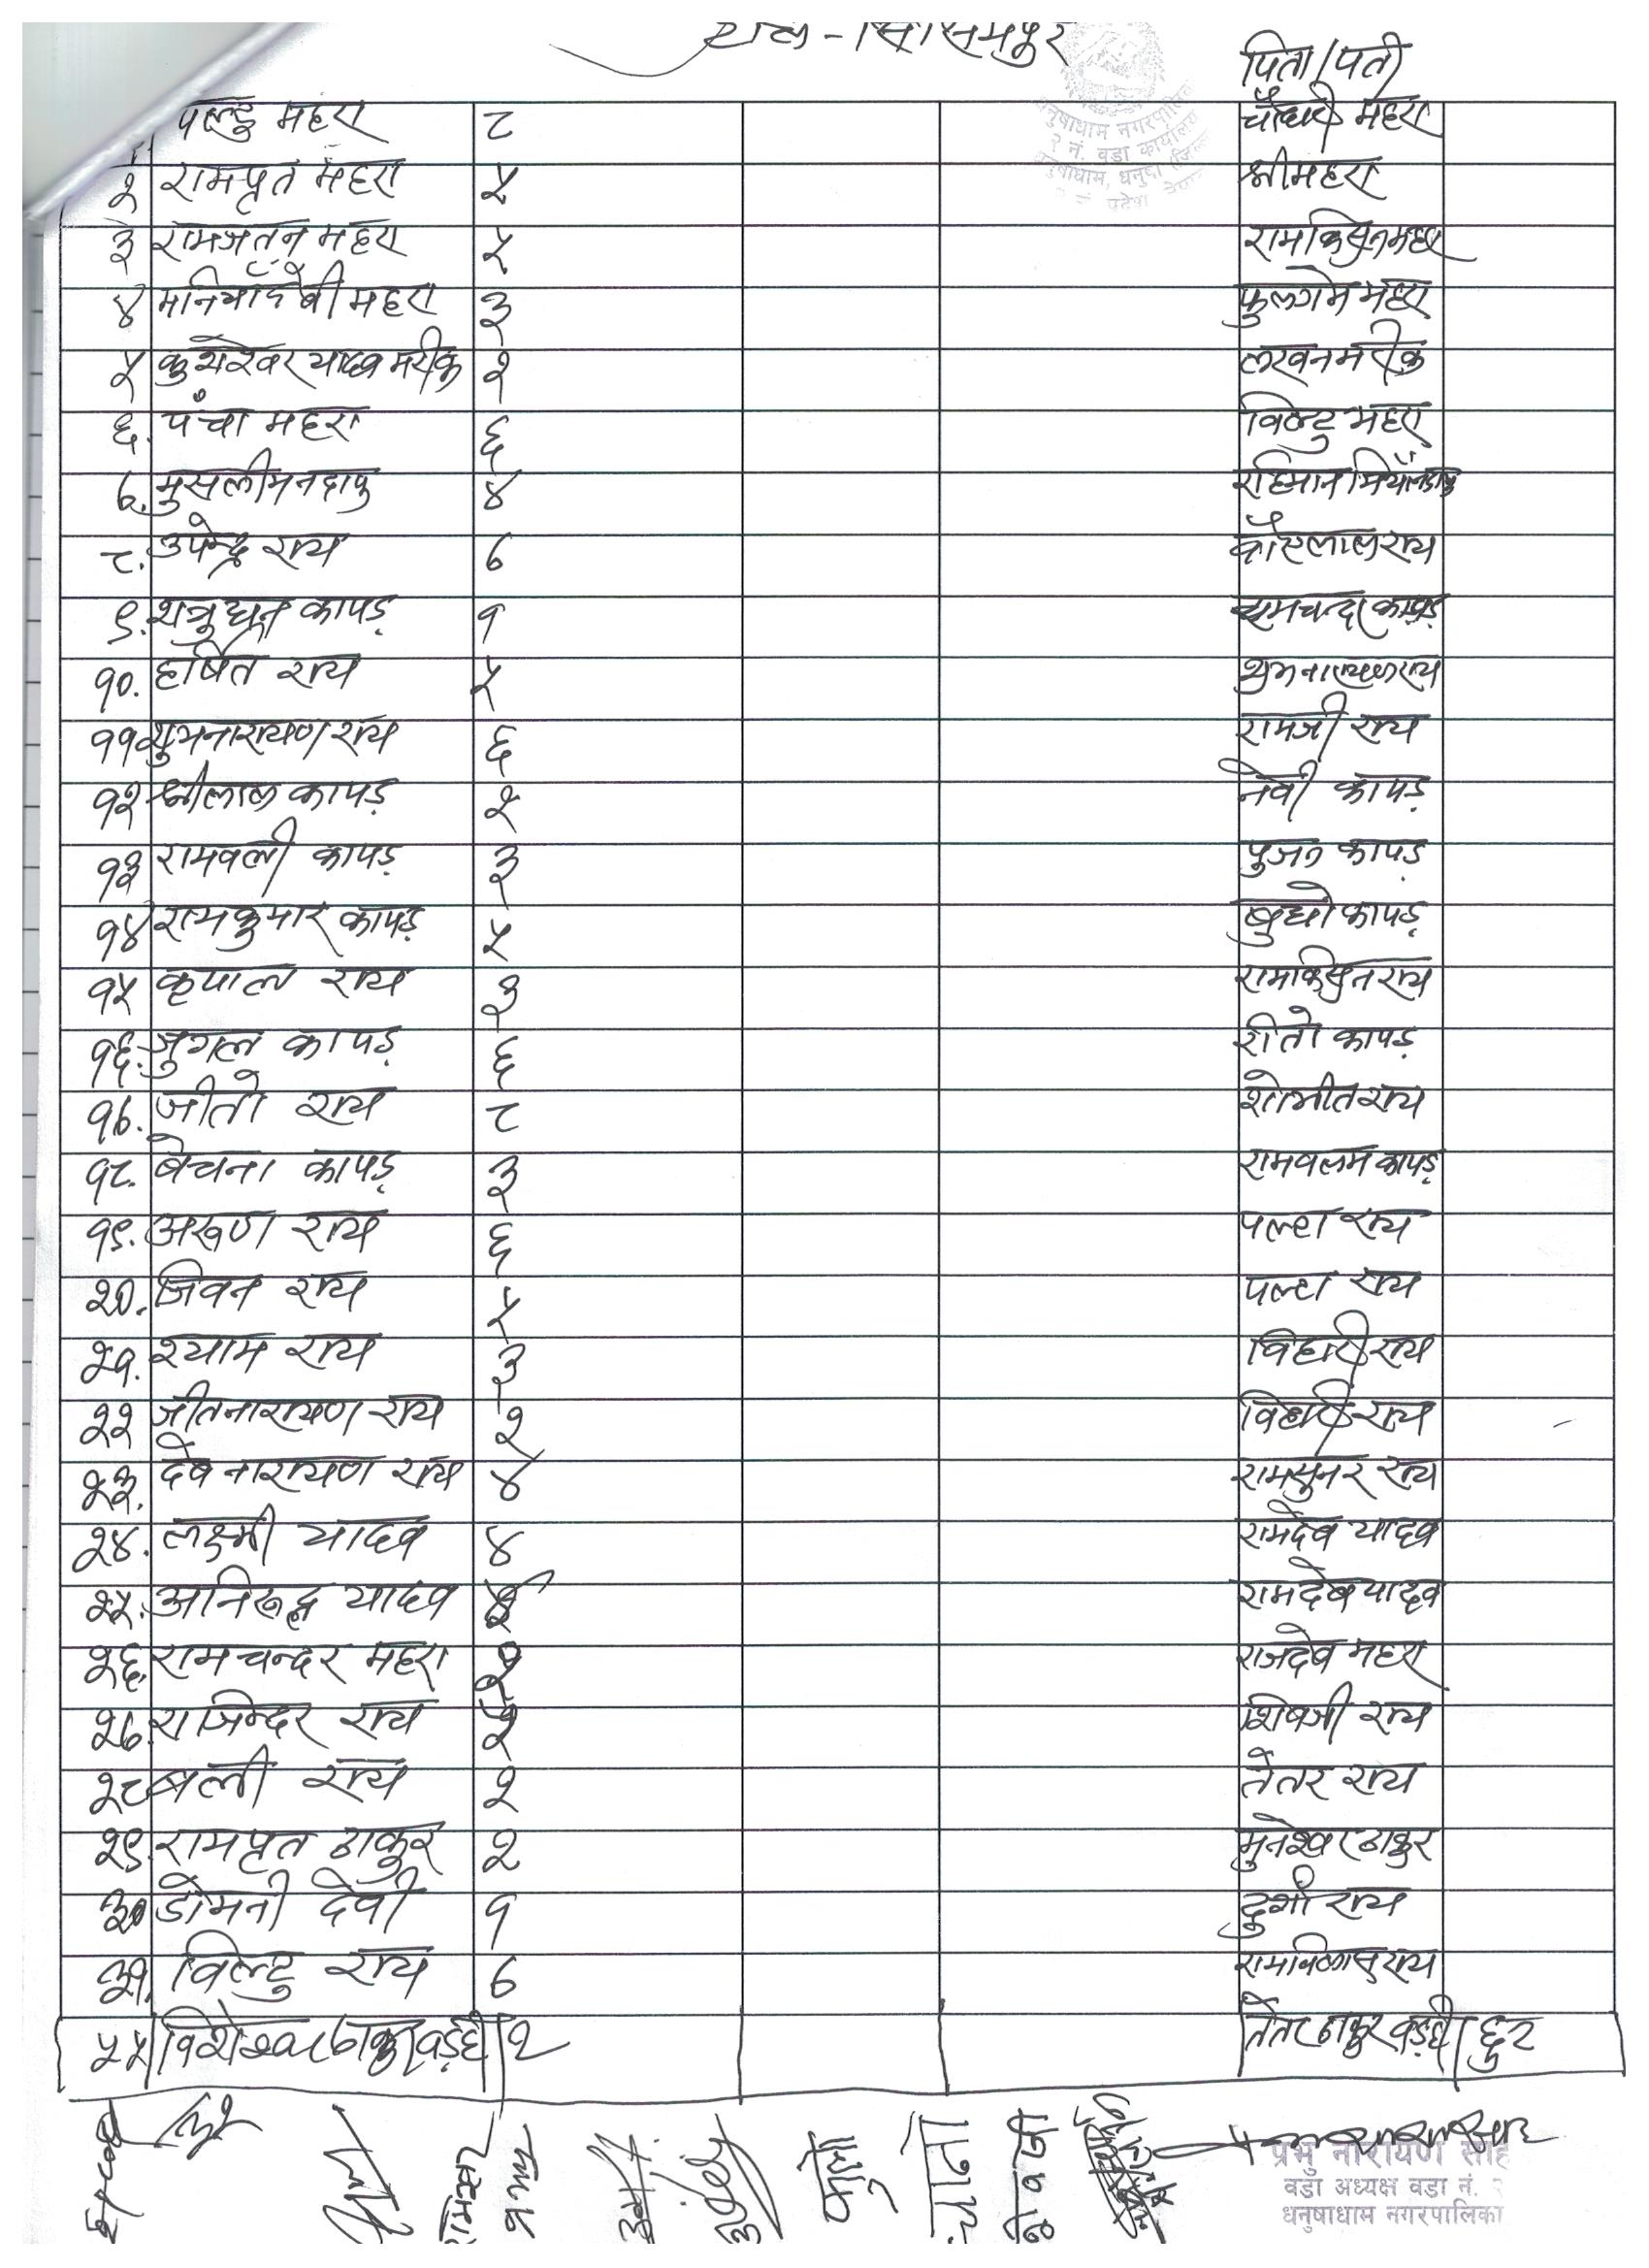 पिता/पती
पल्टु महरा ८ चौधरी महरा
२ रामप्रित महरा ५ श्रीमहरा
३ रामजतन महरा ५ रामकिसुन महरा
४ मनियाँदेवी महरा ३ फुलगेन महरा
५ कुशेश्वर यादव मरीक २ लखन मरीक
६. पंचा महरा ६ विल्टु महरा
७. मुसलीम नदाफ ४ रहिमान मियाँ नदाफ
८. उपेन्द्र राय ७ कौएलाल राय
९. शत्रुघन कापड़ १ रामचन्द्र कापड़
१०. हर्षित राय ५ शुभनारायण राय
११ शुभनारायण राय ६ रामजी राय
१२ श्रीलाल कापड़ २ नेवी कापड़
१३ रामवली कापड़ ३ पुजन कापड़
१४ रामकुमार कापड़ ५ बुधो कापड़
१५ कृपाल राय ३ रामकिसुन राय
१६. जुगल कापड़ ६ रीतो कापड़
१७. जीतो राय ८ शोभीत राय
१८. बेचना कापड़ ३ रामवलम कापड़
१९. अरूण राय ६ पल्टा राय
२०. जिवन राय ५ पल्टा राय
२१. श्याम राय ३ विहारी राय
२२ जीतनारायण राय २ विहारी राय
२३. देवनारायण राय ४ रामसुनर राय
२४. लक्ष्मी यादव ४ रामदेव यादव
२५. अनिरूद्ध यादव रामदेव यादव
२६. रामचन्दर महरा राजदेव महरा
२७. राजिन्दर राय शिवजी राय
२८ बली राय २ तेतर राय
२९. रामप्रित ठाकुर २ मुनेश्वर ठाकुर
३० डोमनी देवी १ दुशाँ राय
३१. विल्टु राय ७ रामविलास राय
५५ विशेश्वर ठाकुर बड़ही २ तेतर ठाकुर बड़ही छुट
धनुषाधाम नगरपालिका
२ नं. वडा कार्यालय
प्रभु नारायण साह
वडा अध्यक्ष वडा नं. २
धनुषाधाम नगरपालिका